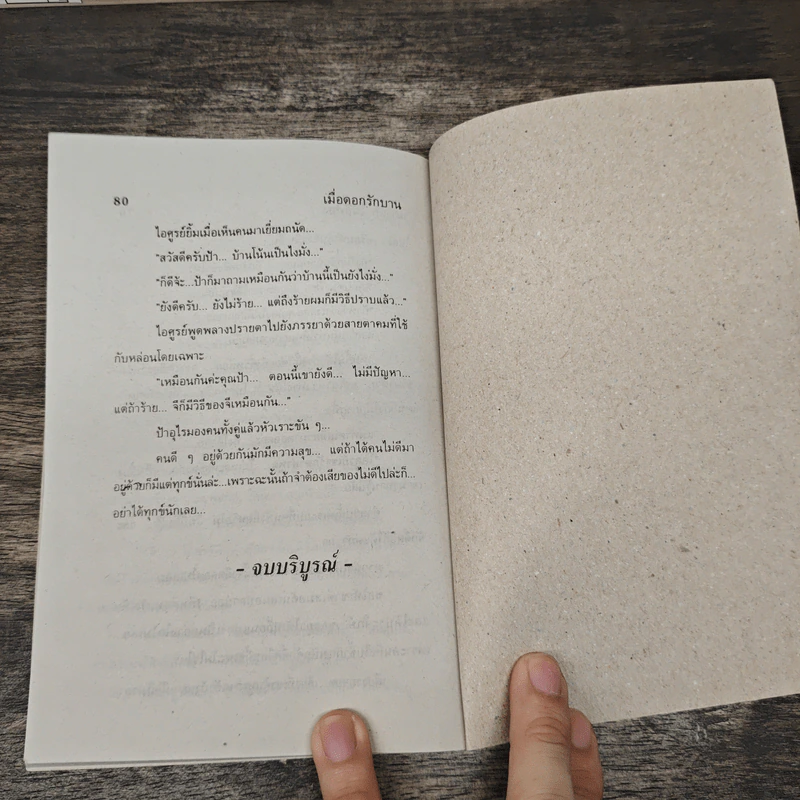 80 เมื่อดอกรักบาน
ไอศูรย์ยิ้มเมื่อเห็นคนมาเยี่ยมถนัด...
“สวัสดีครับป้า... บ้านโน้นเป็นไงมั่ง...”
“ก็ดีจ้ะ...ป้าก็มาถามเหมือนกันว่าบ้านนี้เป็นยังไง่มั่ง...”
“ยังดีครับ... ยังไม่ร้าย... แต่ถึงร้ายผมก็มีวิธีปราบแล้ว...”
ไอศูรย์พูดพลางปรายตาไปยังภรรยาด้วยสายตาคมที่ใช้
กับหล่อนโดยเฉพาะ
“เหมือนกันค่ะคุณป้า... ตอนนี้เขายังดี... ไม่มีปัญหา...
แต่ถ้าร้าย... จีก็มีวิธีของจีเหมือนกัน...”
ป้าอุไรมองคนทั้งคู่แล้วหัวเราะขัน ๆ...
คนดี ๆ อยู่ด้วยกันมักมีความสุข... แต่ถ้าได้คนไม่ดีมา
อยู่ด้วยก็มีแต่ทุกข์นั่นล่ะ...เพราะฉะนั้นถ้าจำต้องเสียของไม่ดีไปล่ะก็...
อย่าได้ทุกข์นักเลย...
- จบบริบูรณ์ -